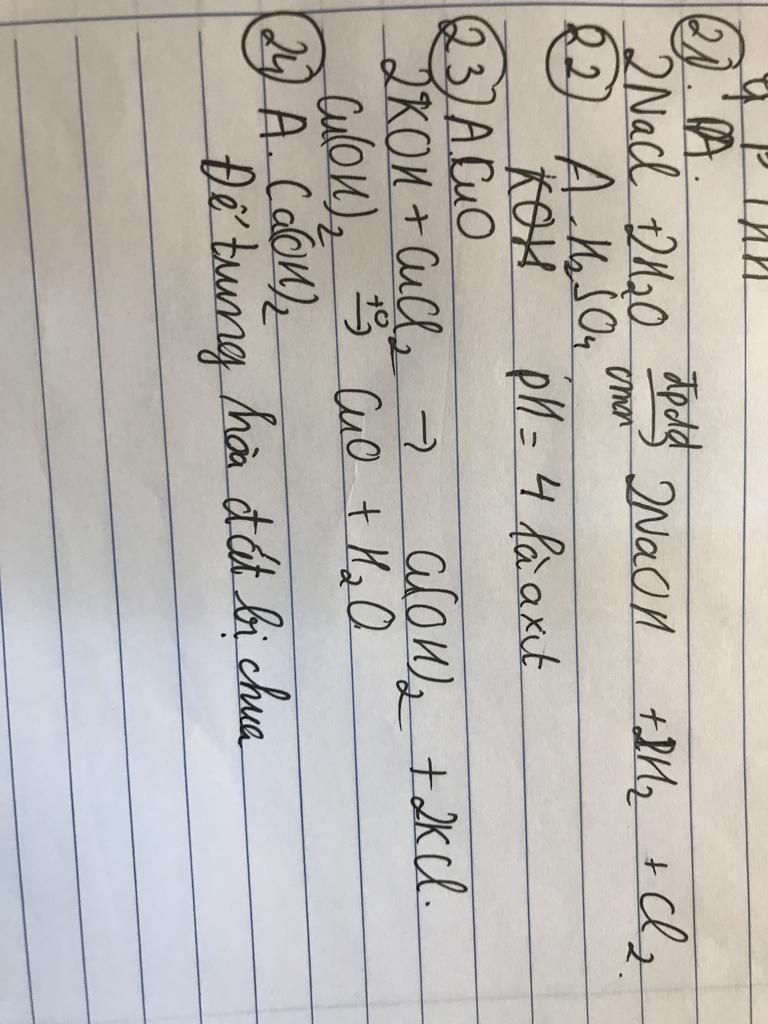 21. A.
2NaCl + 2H2O đpdd→ cmn 2NaOH + H2 + Cl2.
22) A. H2SO4
pH = 4 là axit
23) A. CuO
2KOH + CuCl2 → Cu(OH)2 + 2KCl.
Cu(OH)2 t°→ CuO + H2O
24) A. Ca(OH)2
Để trung hòa đất bị chua